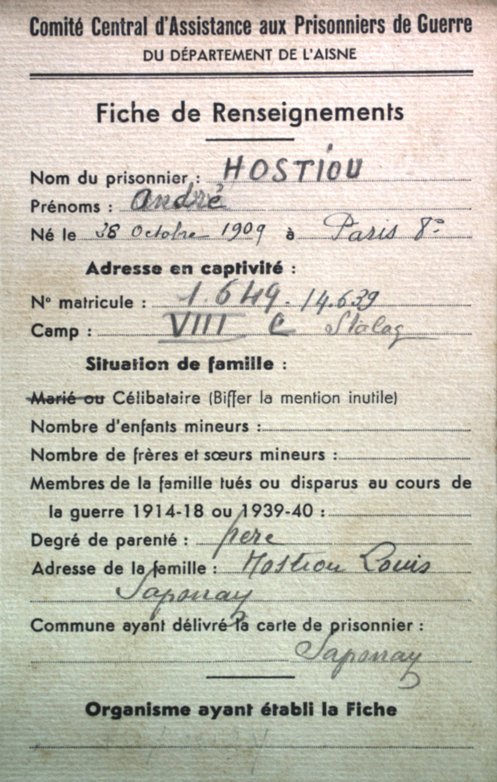 Comité Central d'Assistance aux Prisonniers de Guerre
DU DÉPARTEMENT DE L'AISNE
Fiche de Renseignements
Nom du prisonnier : HOSTIOU
Prénoms : André
Né le 28 Octobre 1909 à Paris 8e
Adresse en captivité :
No matricule : 1.649 - 14.639
Camp : VIII C Stalag
Situation de famille :
Marié ou Célibataire (Biffer la mention inutile)
Nombre d'enfants mineurs :
Nombre de frères et sœurs mineurs :
Membres de la famille tués ou disparus au cours de
la guerre 1914-18 ou 1939-40 :
Degré de parenté : père
Adresse de la famille : Hostiou Louis
Saponay
Commune ayant délivré la carte de prisonnier :
Saponay
Organisme ayant établi la Fiche